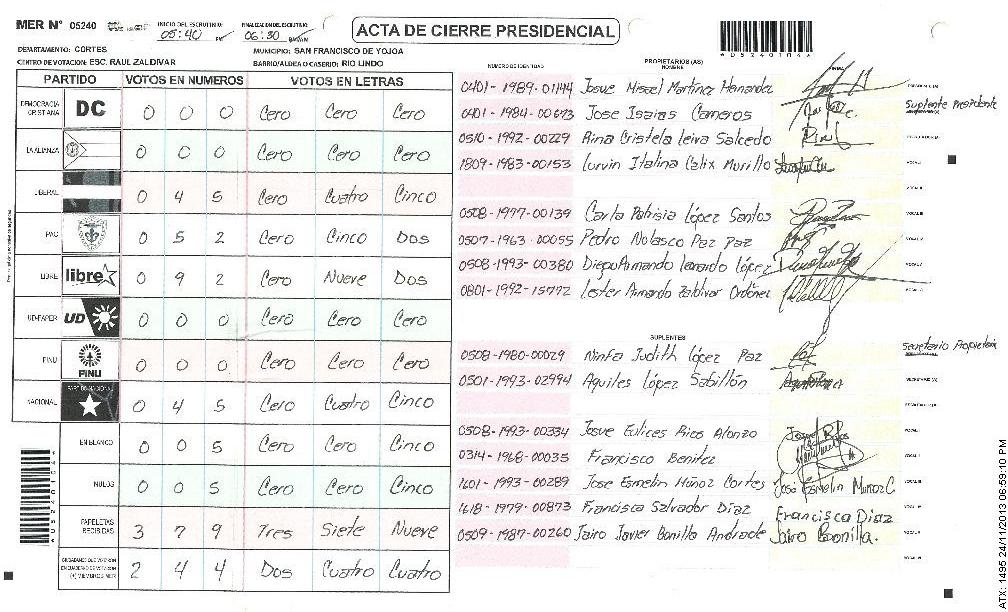 MER N° 05240
INICIO DEL ESCRUTINIO: 05:40 PM
FINALIZACION DEL ESCRUTINIO: 06:30
ACTA DE CIERRE PRESIDENCIAL
DEPARTAMENTO: CORTES
MUNICIPIO: SAN FRANCISCO DE YOJOA
CENTRO DE VOTACION: ESC. RAUL ZALDIVAR
BARRIO/ALDEA O CASERIO: RIO LINDO
PARTIDO VOTOS EN NUMEROS VOTOS EN LETRAS
DEMOCRACIA CRISTIANA DC 0 0 0 Cero Cero Cero
LA ALIANZA 0 0 0 Cero Cero Cero
LIBERAL 0 4 5 Cero Cuatro Cinco
PAC 0 5 2 Cero Cinco Dos
LIBRE libre 0 9 2 Cero Nueve Dos
UD-FAPER UD 0 0 0 Cero Cero Cero
PINU PINU 0 0 0 Cero Cero Cero
NACIONAL PARTIDO NACIONAL 0 4 5 Cero Cuatro Cinco
EN BLANCO 0 0 5 Cero Cero Cinco
NULOS 0 0 5 Cero Cero Cinco
PAPELETAS RECIBIDAS 3 7 9 Tres Siete Nueve
CIUDADANOS QUE VOTARON EN CUADERNO DE VOTACION (+) MIEMBROS MER 2 4 4 Dos Cuatro Cuatro
NUMERO DE IDENTIDAD
PROPIETARIOS (AS)
NOMBRE
0401-1989-01144 Josue Misael Martinez Hernandez
0401-1984-00673 Jose Isaias Cameros Suplente Presidente
0510-1992-00229 Rina Cristela Leiva Salcedo
1809-1983-00153 Lurvin Italina Calix Murillo
0508-1977-00139 Carla Patrisia López Santos
0507-1963-00055 Pedro Nolasco Paz Paz
0508-1993-00380 Diego Armando Leonardo López
0801-1992-15772 Lester Armando Zaldivar Ordoñez
SUPLENTES
0508-1980-00029 Ninfa Judith López Paz Secretario Propietario
0501-1993-02994 Aquiles López Sabillón
0508-1993-00334 Josue Eulices Rios Alonzo
0314-1968-00035 Francisco Benitez
1601-1993-00289 Jose Esmelin Muñoz Cortes José Esmelin Muñoz C
1618-1979-00873 Francisca Salvador Diaz Francisca Diaz
0509-1987-00260 Jairo Javier Bonilla Andrade Jairo Bonilla.
ATX: 1495 24/11/2013 06:59:10 PM